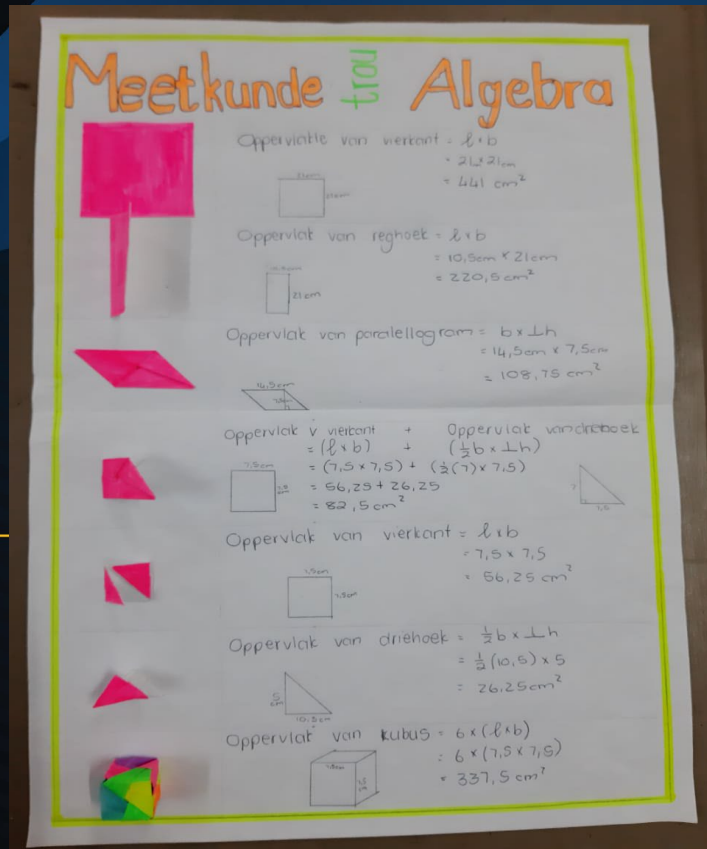 Meetkunde trou Algebra
Oppervlakte van vierkant = l×b
= 21cm×21cm
= 441 cm²
21cm
21cm
Oppervlak van reghoek = l×b
= 10,5cm × 21cm
= 220,5cm²
10,5cm
21cm
Oppervlak van parallellogram = b×⊥h
= 14,5cm × 7,5cm
= 108,75 cm²
14,5cm
Oppervlak v vierkant + Oppervlak van driehoek
= (l×b) + (½b×⊥h)
= (7,5×7,5) + (½(7)×7,5)
= 56,25 + 26,25
= 82,5cm²
7,5cm
7
7,5
Oppervlak van vierkant = l×b
= 7,5 × 7,5
= 56,25 cm²
7,5cm
7,5cm
Oppervlak van driehoek = ½b×⊥h
= ½(10,5)×5
= 26,25cm²
5cm
10,5cm
Oppervlak van kubus = 6×(l×b)
= 6×(7,5×7,5)
= 337,5 cm²
7,5cm